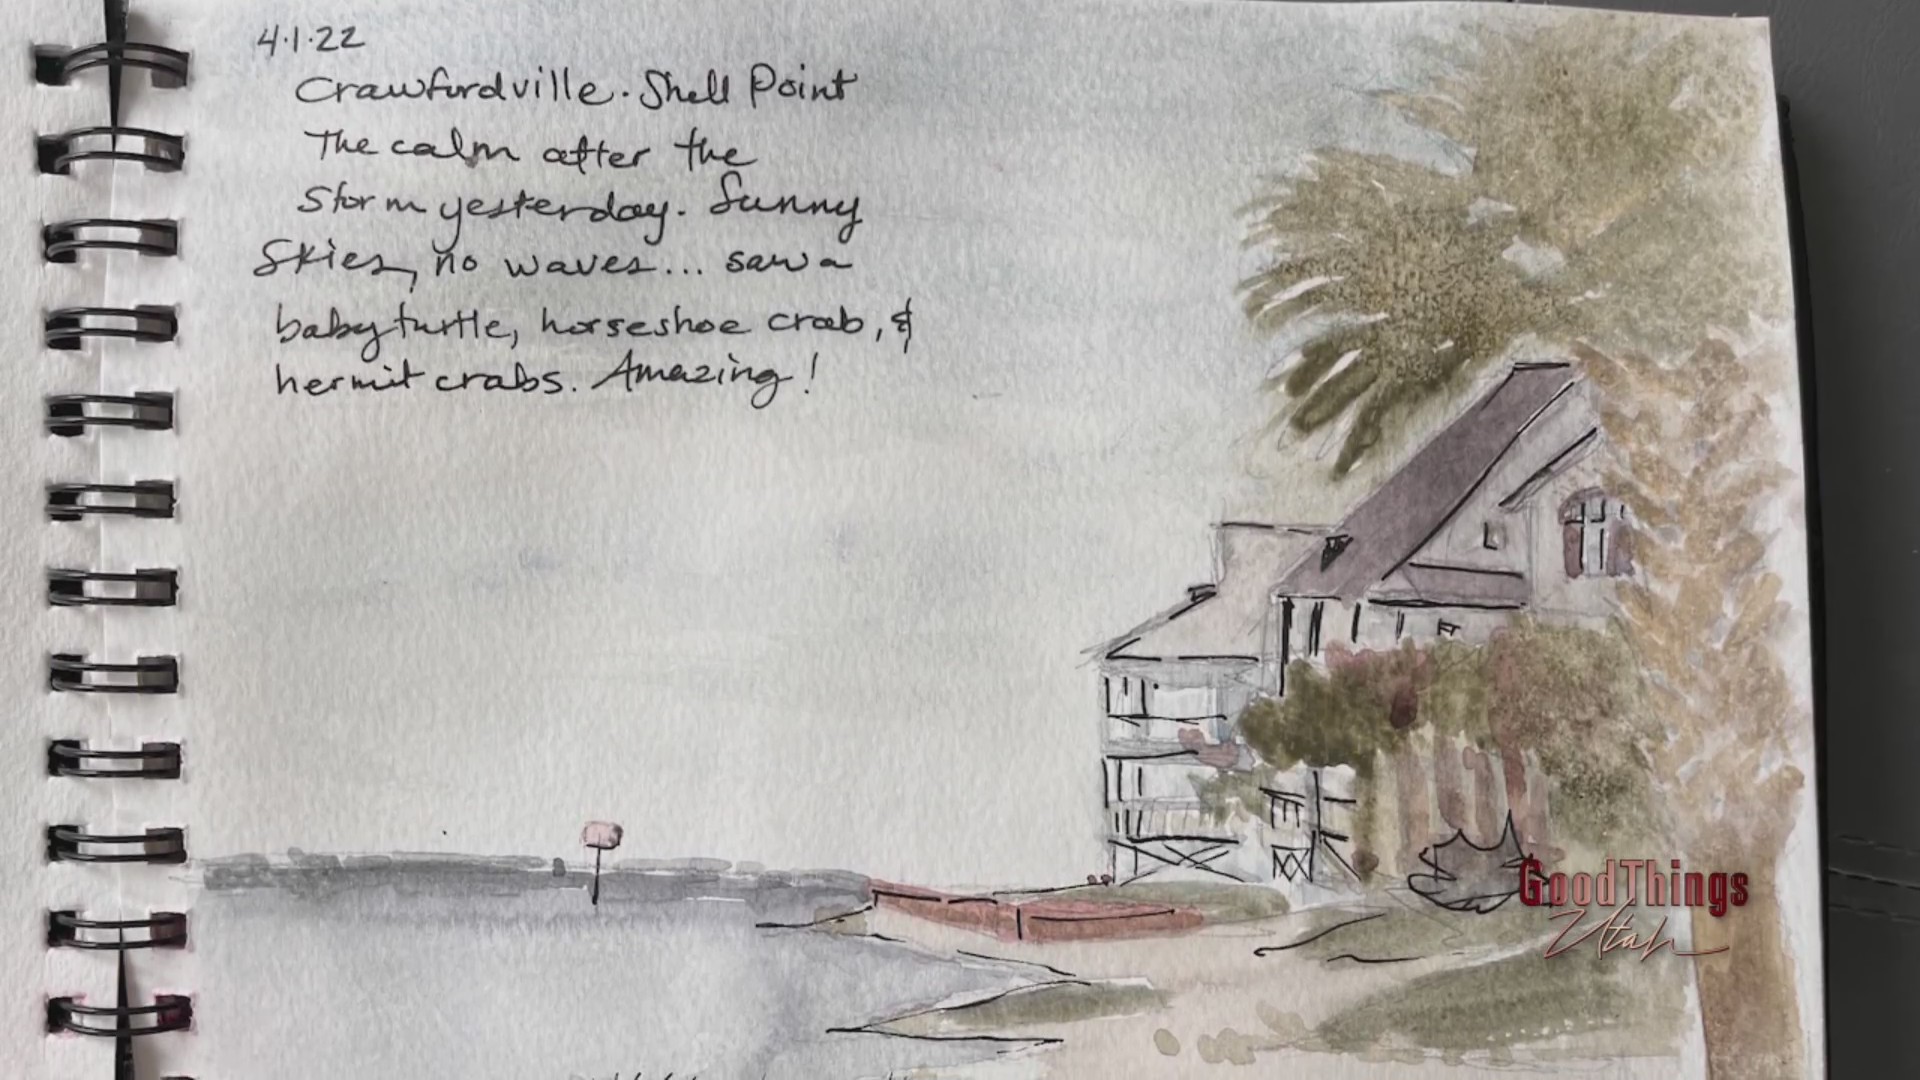 4.1.22
Crawfordville. Shell Point
The calm after the
Storm yesterday. Sunny
Skies, no waves... saw a
baby turtle, horseshoe crab, &
hermit crabs. Amazing!
GoodThings
Utah